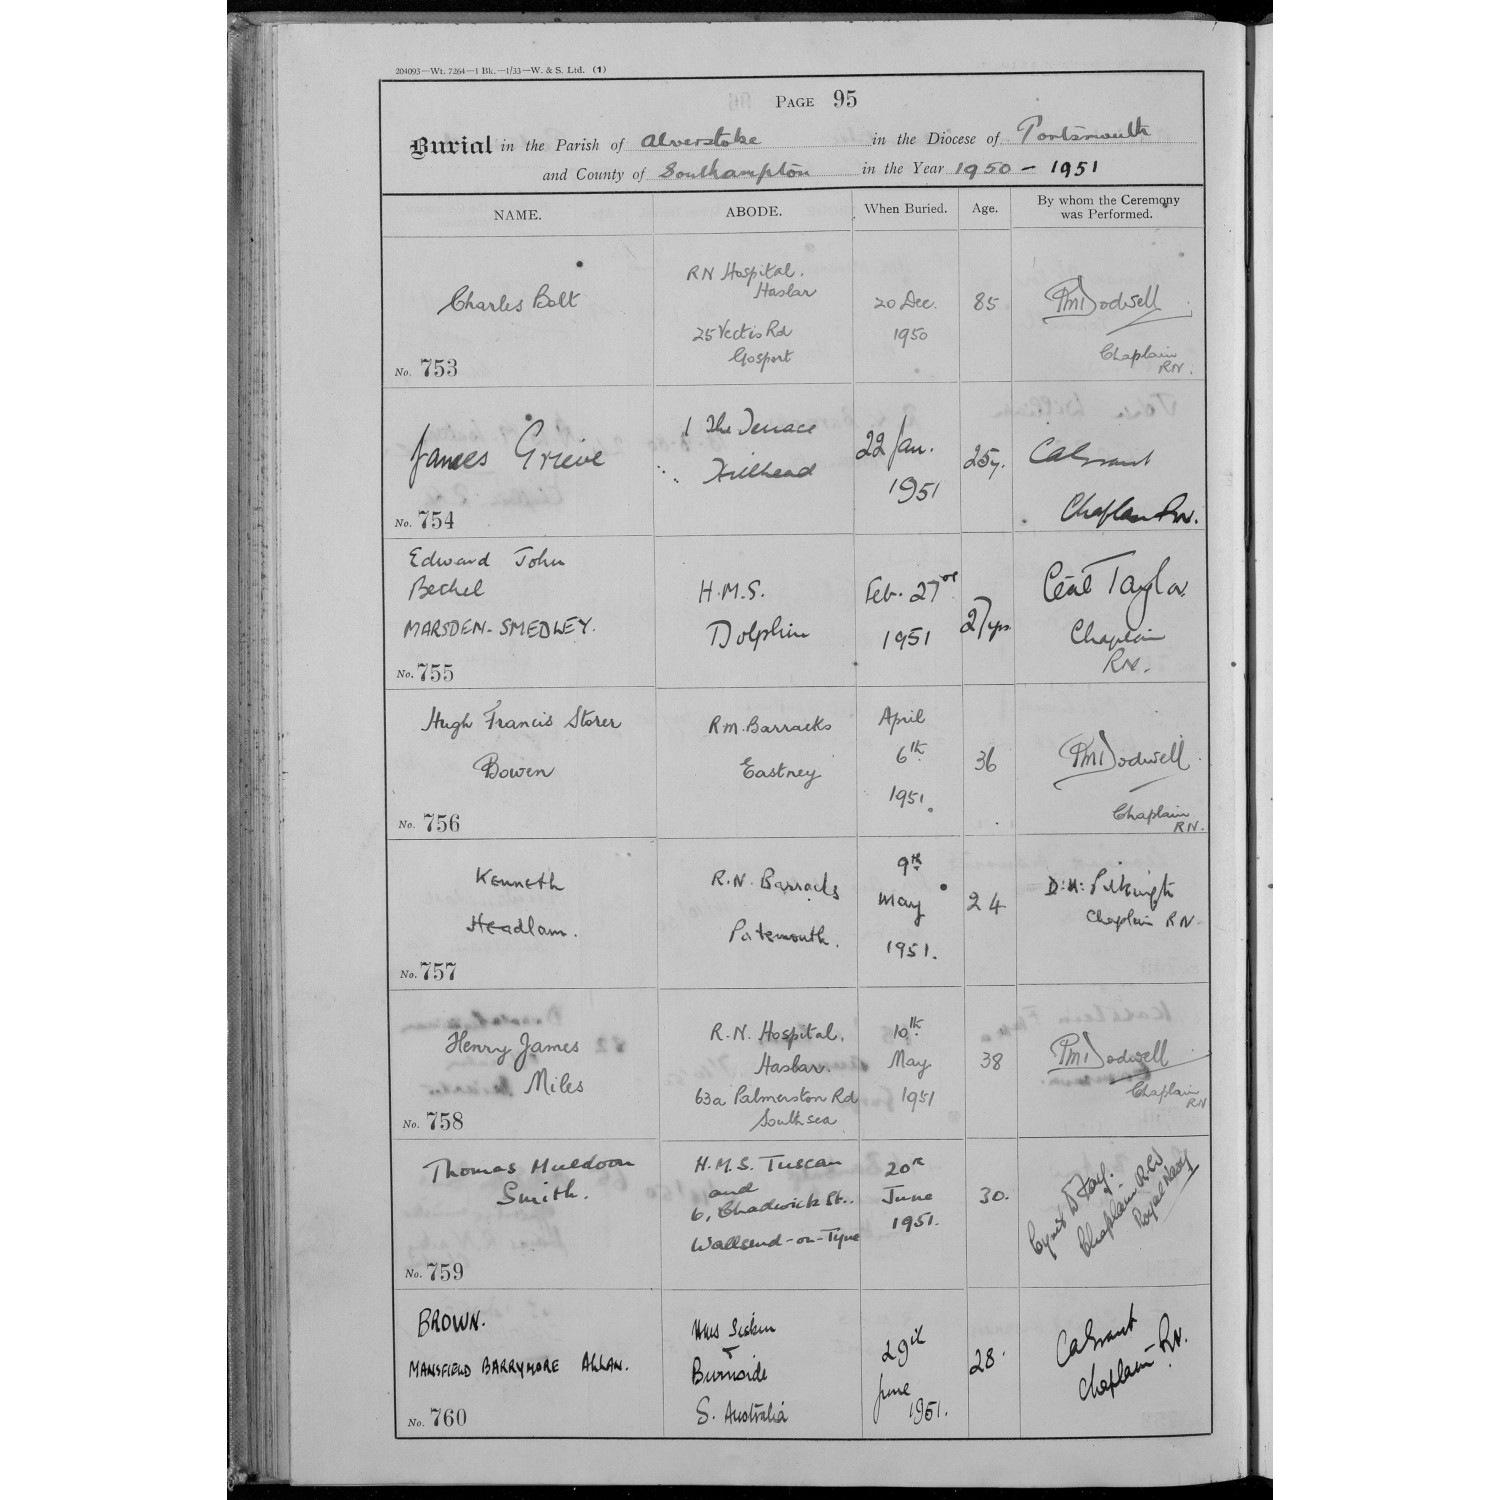 204093—Wt. 7264—1 Bk.—1/33—W. & S. Ltd. (1)
PAGE 95
Burial in the Parish of Alverstoke in the Diocese of Portsmouth
and County of Southampton in the Year 1950 - 1951
NAME. ABODE. When Buried. Age. By whom the Ceremony was Performed.
Charles Bolt
RN Hospital.
Haslar
25 Vectis Rd
Gosport
20 Dec.
1950
85
PMDodwell
Chaplain
RN.
No. 753
James Grieve
1 The Terrace
Hillhead
22 Jan.
1951
25y.
Chaplain RN.
No. 754
Edward John
Bechel
MARSDEN-SMEDLEY.
H.M.S.
Dolphin
Feb. 27
1951
27yrs
Cecil Taylor
Chaplain
RN.
No. 755
Hugh Francis Storer
Bowen
R.M. Barracks
Eastney
April
6th
1951.
36
PMDodwell
Chaplain
RN.
No. 756
Kenneth
Headlam.
R.N. Barracks
Portsmouth.
9th
May
1951.
24
D.H.
Chaplain RN.
No. 757
Henry James
Miles
R.N. Hospital.
Haslar.
63a Palmerston Rd
Southsea
10th
May
1951
38
PMDodwell
Chaplain
RN
No. 758
Thomas Muldoon
Smith.
H.M.S. Tuscan
and
6, Chadwick St..
Wallsend-on-Tyne
20th
June
1951.
30.
Chaplain
Royal Navy
No. 759
BROWN.
MANSFIELD BARRYMORE ALLAN.
HMS Siskin
Burnside
S. Australia
29th
June
1951.
28.
Chaplain RN.
No. 760